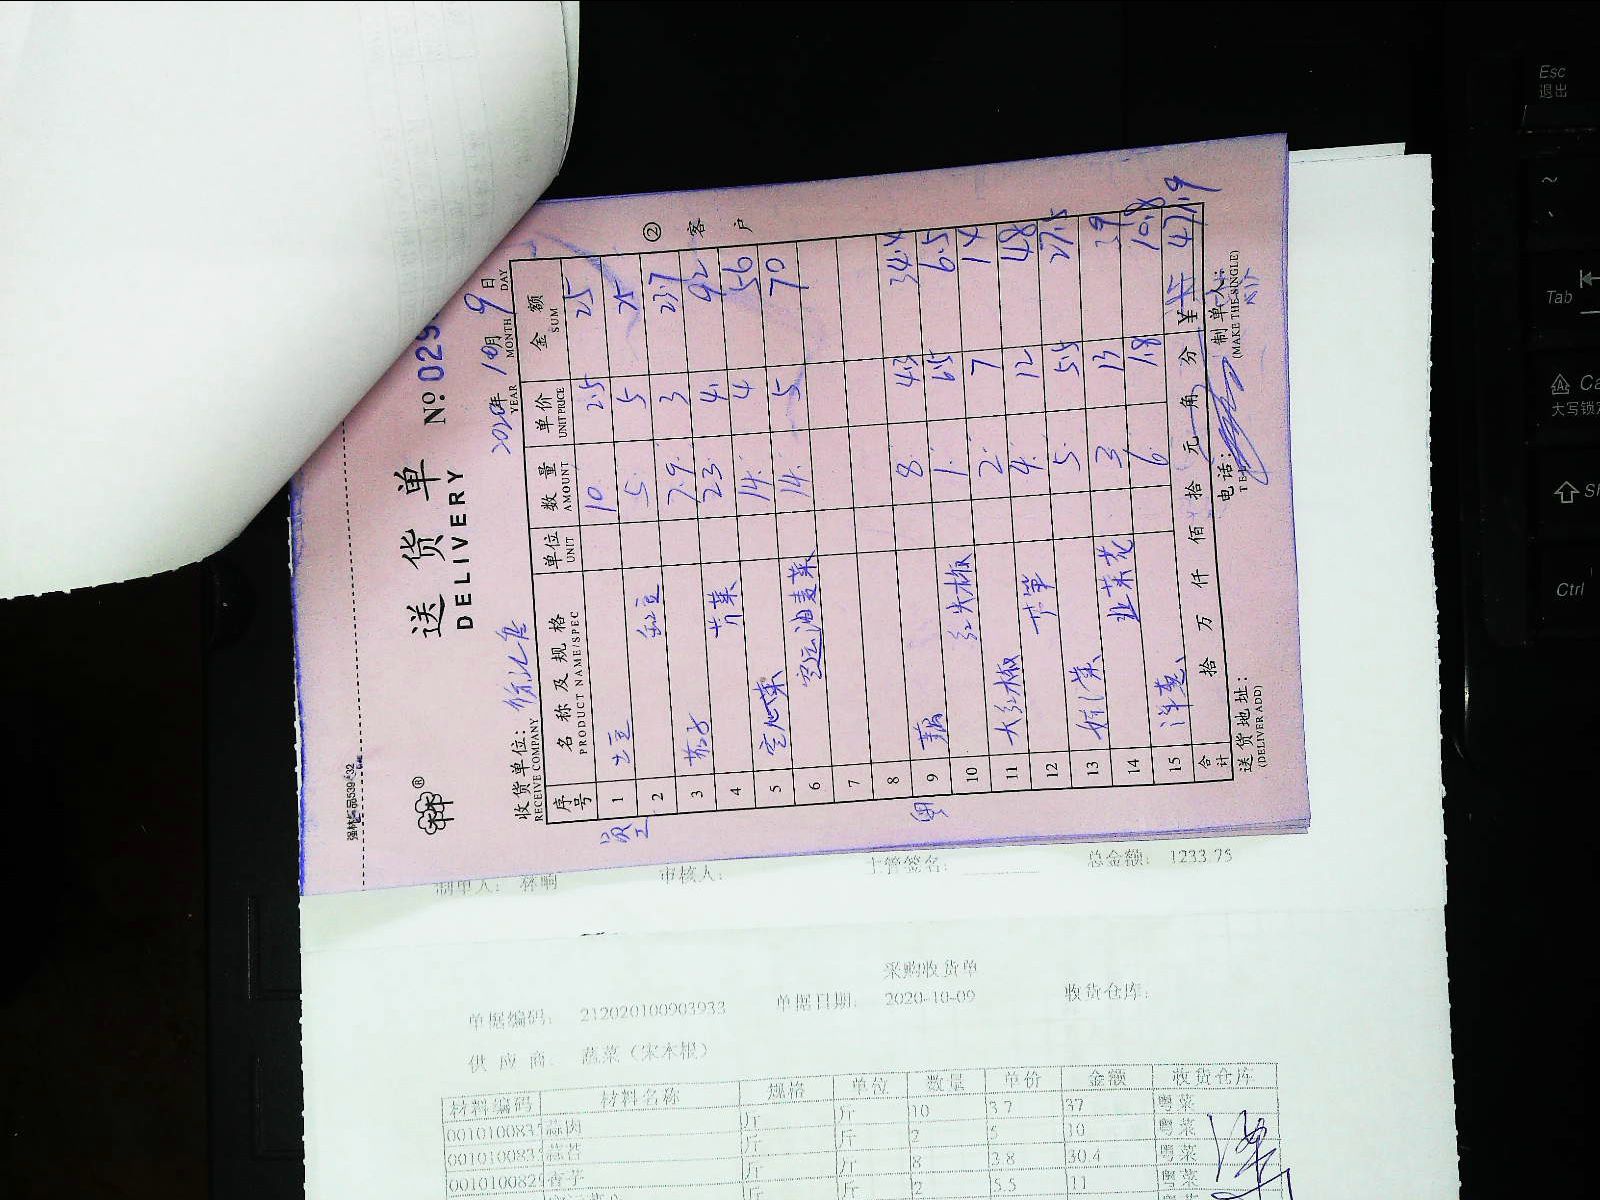 强林纸品539-32
送货单 No. 029
DELIVERY
2020年 10月 9日
YEAR MONTH DAY
收货单位:
RECEIVE COMPANY
序号 名称及规格 单位 数量 单价 金额
PRODUCT NAME/SPEC UNIT AMOUNT UNIT PRICE SUM
②客户
员工
1 土豆 10 2.5 25
2 豇豆 5 5 25
3 茄子 7.9 3 23.7
4 芹菜 23 4 92
5 空心菜 14 4 56
6 空运油麦菜 14 5 70
7
8
9 藕 8 4.3 34.4
10 红尖椒 1 6.5 6.5
11 大红椒 2 7 14
12 芦笋 4 12 48
13 5 5.5 27.5
14 韭菜花 3 13 39
15 洋葱 6 1.8 10.8
合计 拾 万 仟 佰 拾 元 角 分 ¥ 471.9
送货地址: 电话: 制单人:
(DELIVER ADD) TEL (MAKE THE SINGLE)
制单人: 林响 审核人: 主管签名: 总金额: 1233.75
采购收货单
单据编码: 212020100903933 单据日期: 2020-10-09 收货仓库:
供 应 商: 蔬菜(宋本银)
材料编码 材料名称 规格 单位 数量 单价 金额 收货仓库
001010083 蒜肉 斤 斤 10 3.7 37 粤菜
001010083 蒜苔 斤 斤 2 5 10 粤菜
001010082 香芋 斤 斤 8 3.8 30.4 粤菜
斤 斤 2 5.5 11 粤菜
Esc
退出
~
Tab
大写锁定
Ctrl